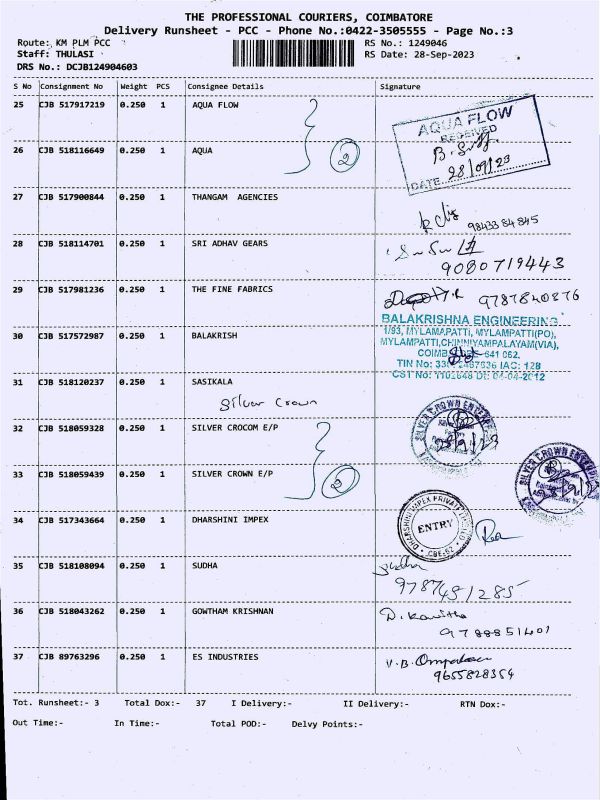 THE PROFESSIONAL COURIERS, COIMBATORE
Delivery Runsheet - PCC - Phone No.:0422-3505555 - Page No.:3
Route: KM PLM PCC RS No.: 1249046
Staff: THULASI RS Date: 28-Sep-2023
DRS No.: DCJB124904603
S No Consignment No Weight PCS Consignee Details Signature
25 CJB 517917219 0.250 1 AQUA FLOW
AQUA FLOW
RECEIVED
DATE 28/09/23
26 CJB 518116649 0.250 1 AQUA
2
27 CJB 517900844 0.250 1 THANGAM AGENCIES
9843384845
28 CJB 518114701 0.250 1 SRI ADHAV GEARS
9080719443
29 CJB 517981236 0.250 1 THE FINE FABRICS
9787840876
BALAKRISHNA ENGINEERING
1/93, MYLAMAPATTI, MYLAMPATTI(PO),
MYLAMPATTI,CHINNIYAMPALAYAM(VIA),
641 062.
30 CJB 517572987 0.250 1 BALAKRISH
31 CJB 518120237 0.250 1 SASIKALA
Silver Crown
32 CJB 518059328 0.250 1 SILVER CROCOM E/P
33 CJB 518059439 0.250 1 SILVER CROWN E/P
2
SILVER CROWN
34 CJB 517343664 0.250 1 DHARSHINI IMPEX
DHARSHINI IMPEX PRIVATE
ENTRY
35 CJB 518108094 0.250 1 SUDHA
Sudha
9787451285
36 CJB 518043262 0.250 1 GOWTHAM KRISHNAN
D. Kavitha
37 CJB 89763296 0.250 1 ES INDUSTRIES
V.B.
9655828354
Tot. Runsheet:- 3 Total Dox:- 37 I Delivery:- II Delivery:- RTN Dox:-
Out Time:- In Time:- Total POD:- Delvy Points:-